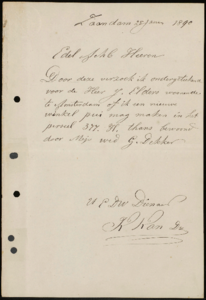 Zaandam 1890
Edel Achtb Heeren
Door deze verzoek ik ondergeteekende
voor de Heer J.
te Amsterdam of ik een nieuw
winkel pui mag maken in het
perceel 377. thans bewoond
door Mejr wed G. Dekker
U E Dw Dienaar
K Kan